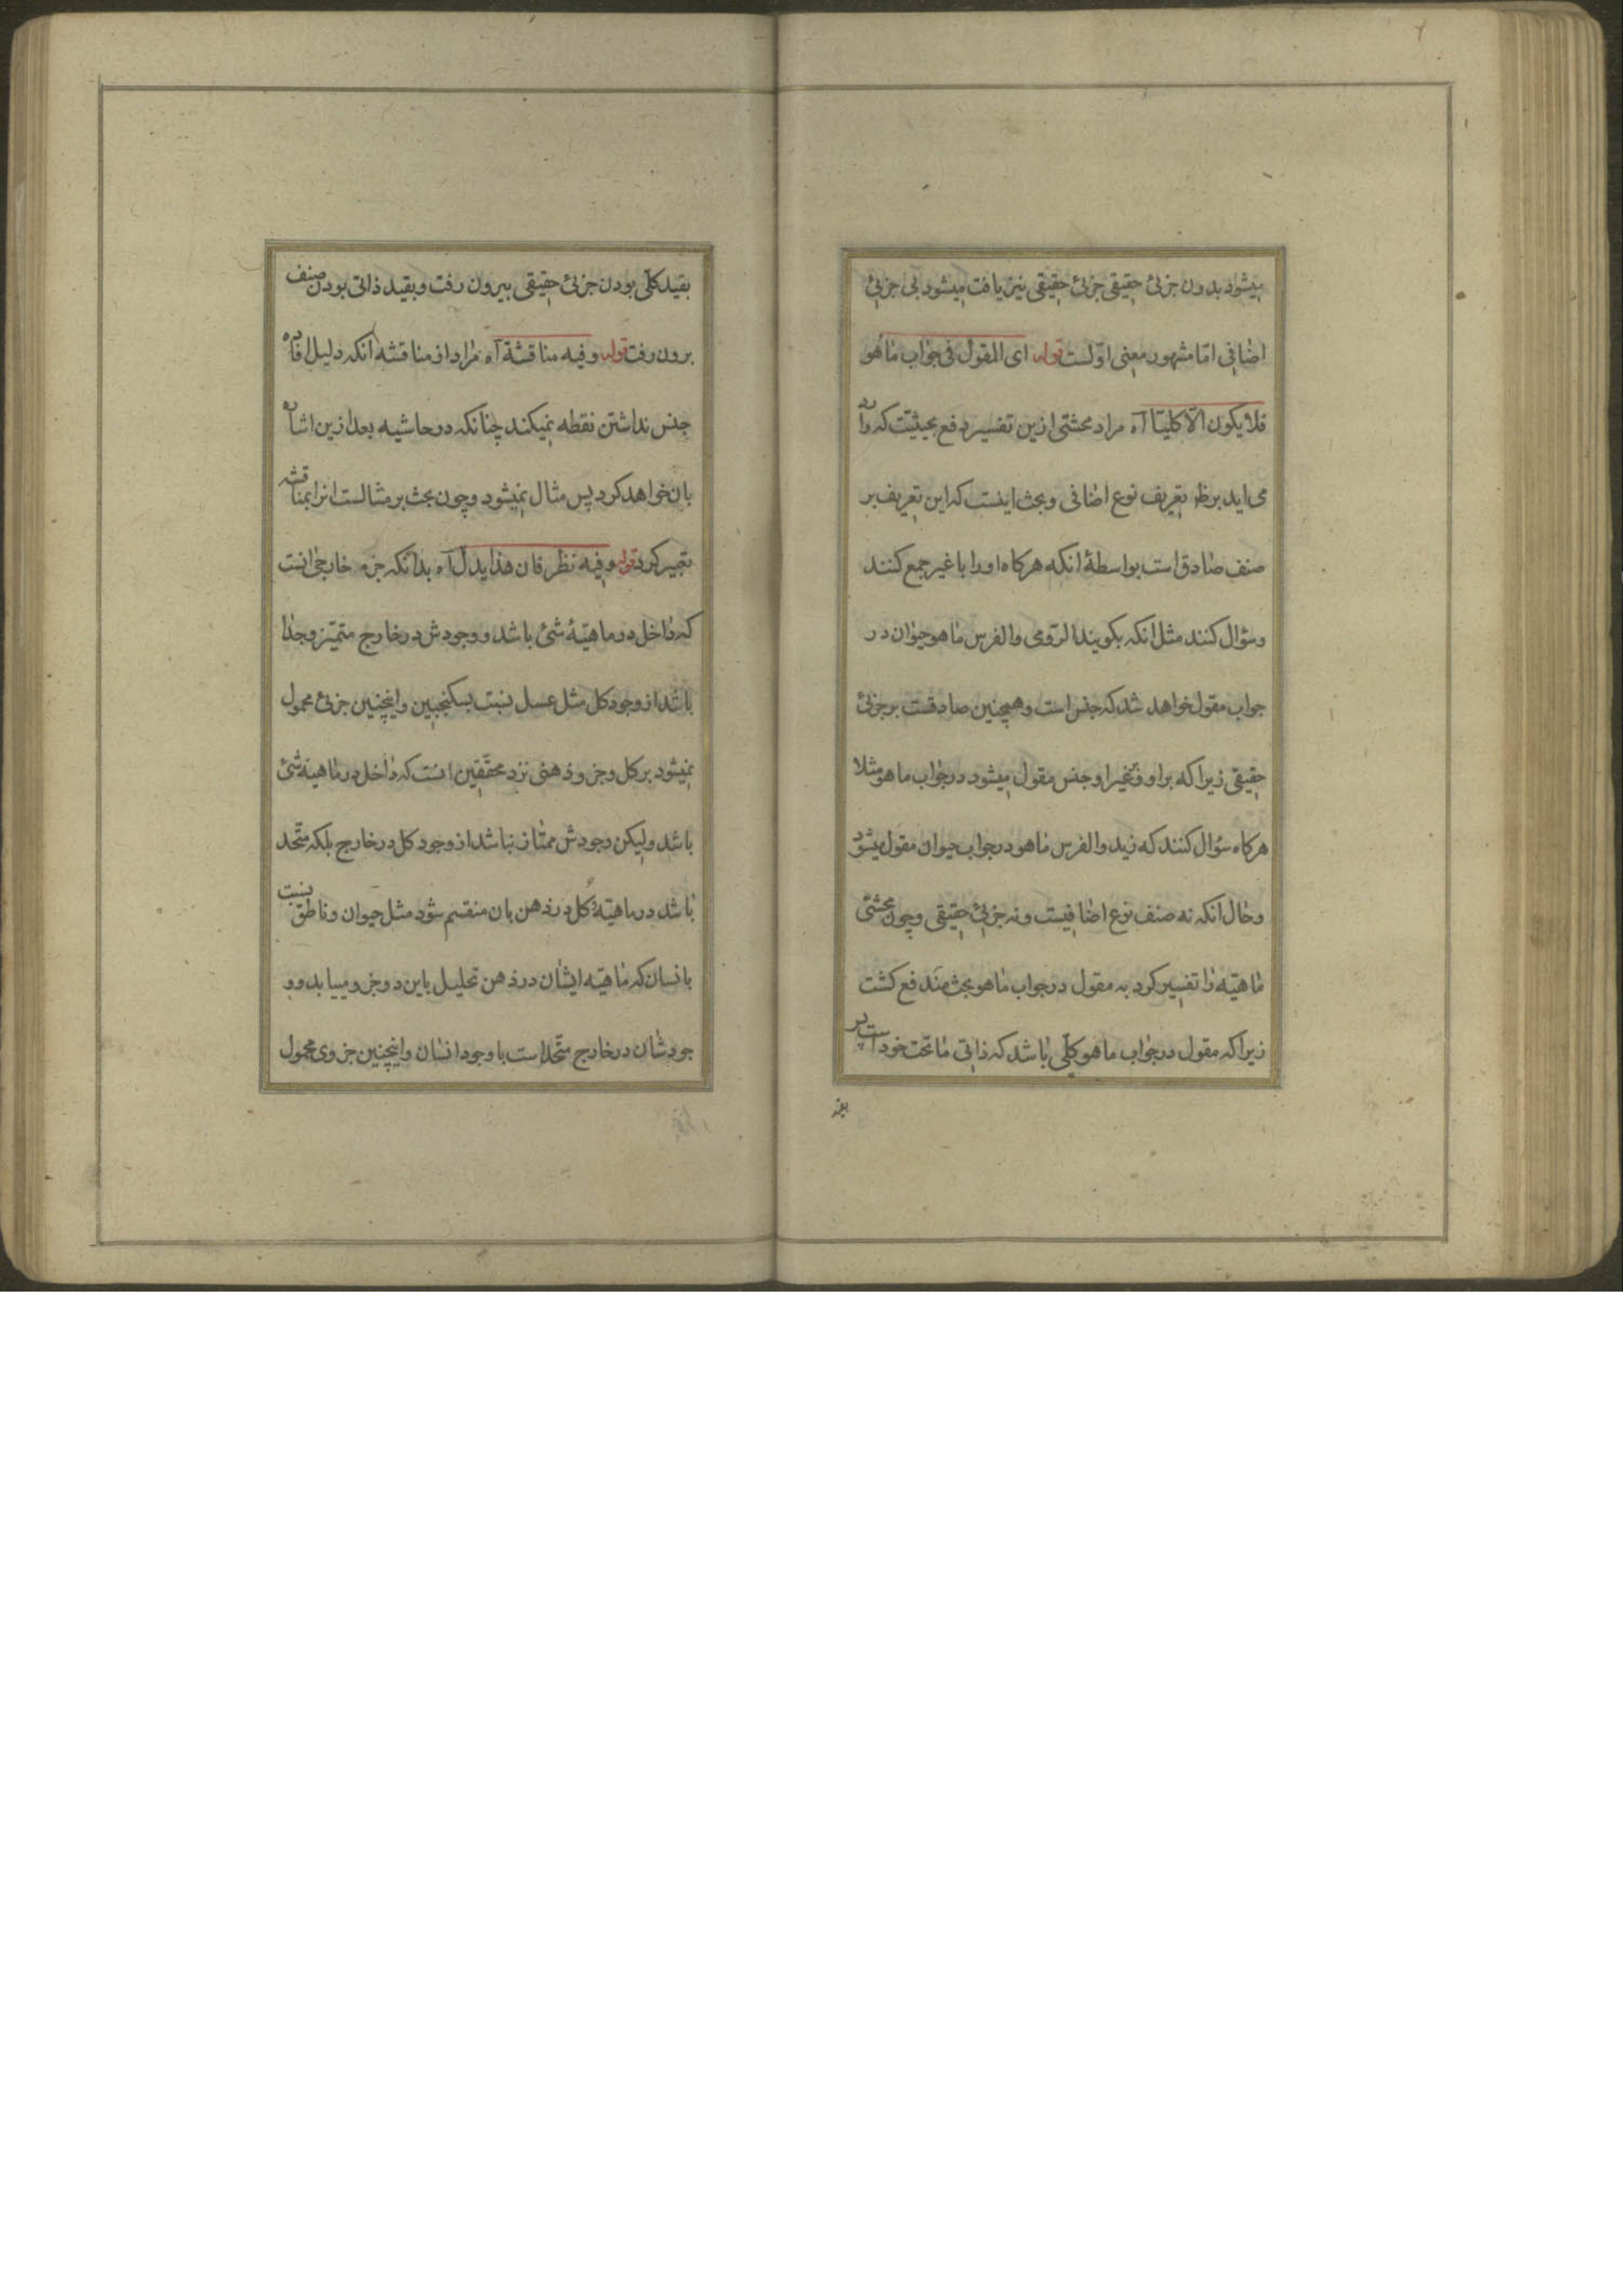 میشود بدون جزئی حقیقی جزئی حقیقی نیز یافت میشود بی جزئی
اضافی اما مشهور معنی اولست قوله ای المقول فی جواب ماهو
فلا یکون الا کلیتا آه مراد محشی ازین تفسیر دفع بحیثیت که وارد
می اید بر ظ تعریف نوع اضافی و بحث اینست که این تعریف بر
صنف صادق است بواسطهٔ انکه هرکاه او را با غیر جمع کنند
وسؤال کنند مثل انکه بکویند الرومی والفرس ماهو حیوان در
جواب مقول خواهد شد که جنس است و همچنین صادقست بر جزئی
حقیقی زیرا که بر او و غیر او جنس مقول میشود در جواب ماهو مثلا
هرکاه سؤال کنند که زید والفرس ماهو در جواب حیوان مقول میشود
وحال انکه نه صنف نوع اضافیست و نه جزئی حقیقی و چون محشی
ماهیته را تفسیر کرد به مقول در جواب ماهو بحث مندفع کشت
زیرا که مقول در جواب ماهو کلی باشد که ذاتی ماتحت خود است پس
بقید
بقید کلی بودن جزئی حقیقی بیرون رفت و بقید ذاتی بودن صنف
برون رفت قوله وفیه مناقشة آه مراد از مناقشه آنکه دلیل افاده
جنس نداشتن نقطه نمیکند چنانکه در حاشیه بعد ازین اشاره
بان خواهد کرد پس مثال نمیشود و چون بحث بر مثالست انرا بمناقشه
تعبیر کرد قوله وفیه نظر فان هذا یدل آه بدانکه جزء خارجی انست
که داخل در ماهیتهٔ شئ باشد و وجودش در خارج متمیز وجدا
باشد از وجود کل مثل عسل نسبت بسکنجبین واینچنین جزئی محمول
نمیشود بر کل وجزو ذهنی نزد محققین انست که داخل در ماهیته شئ
باشد ولیکن وجودش ممتاز نباشد از وجود کل در خارج بلکه متحد
باشد در ماهیته کل در ذهن بان منقسم شود مثل حیوان وناطق نسبت
بانسان که ماهیته ایشان در ذهن تحلیل باین دو جزو مییابد وو
جودشان در خارج متحد است با وجود انسان واینچنین جزوی محمول